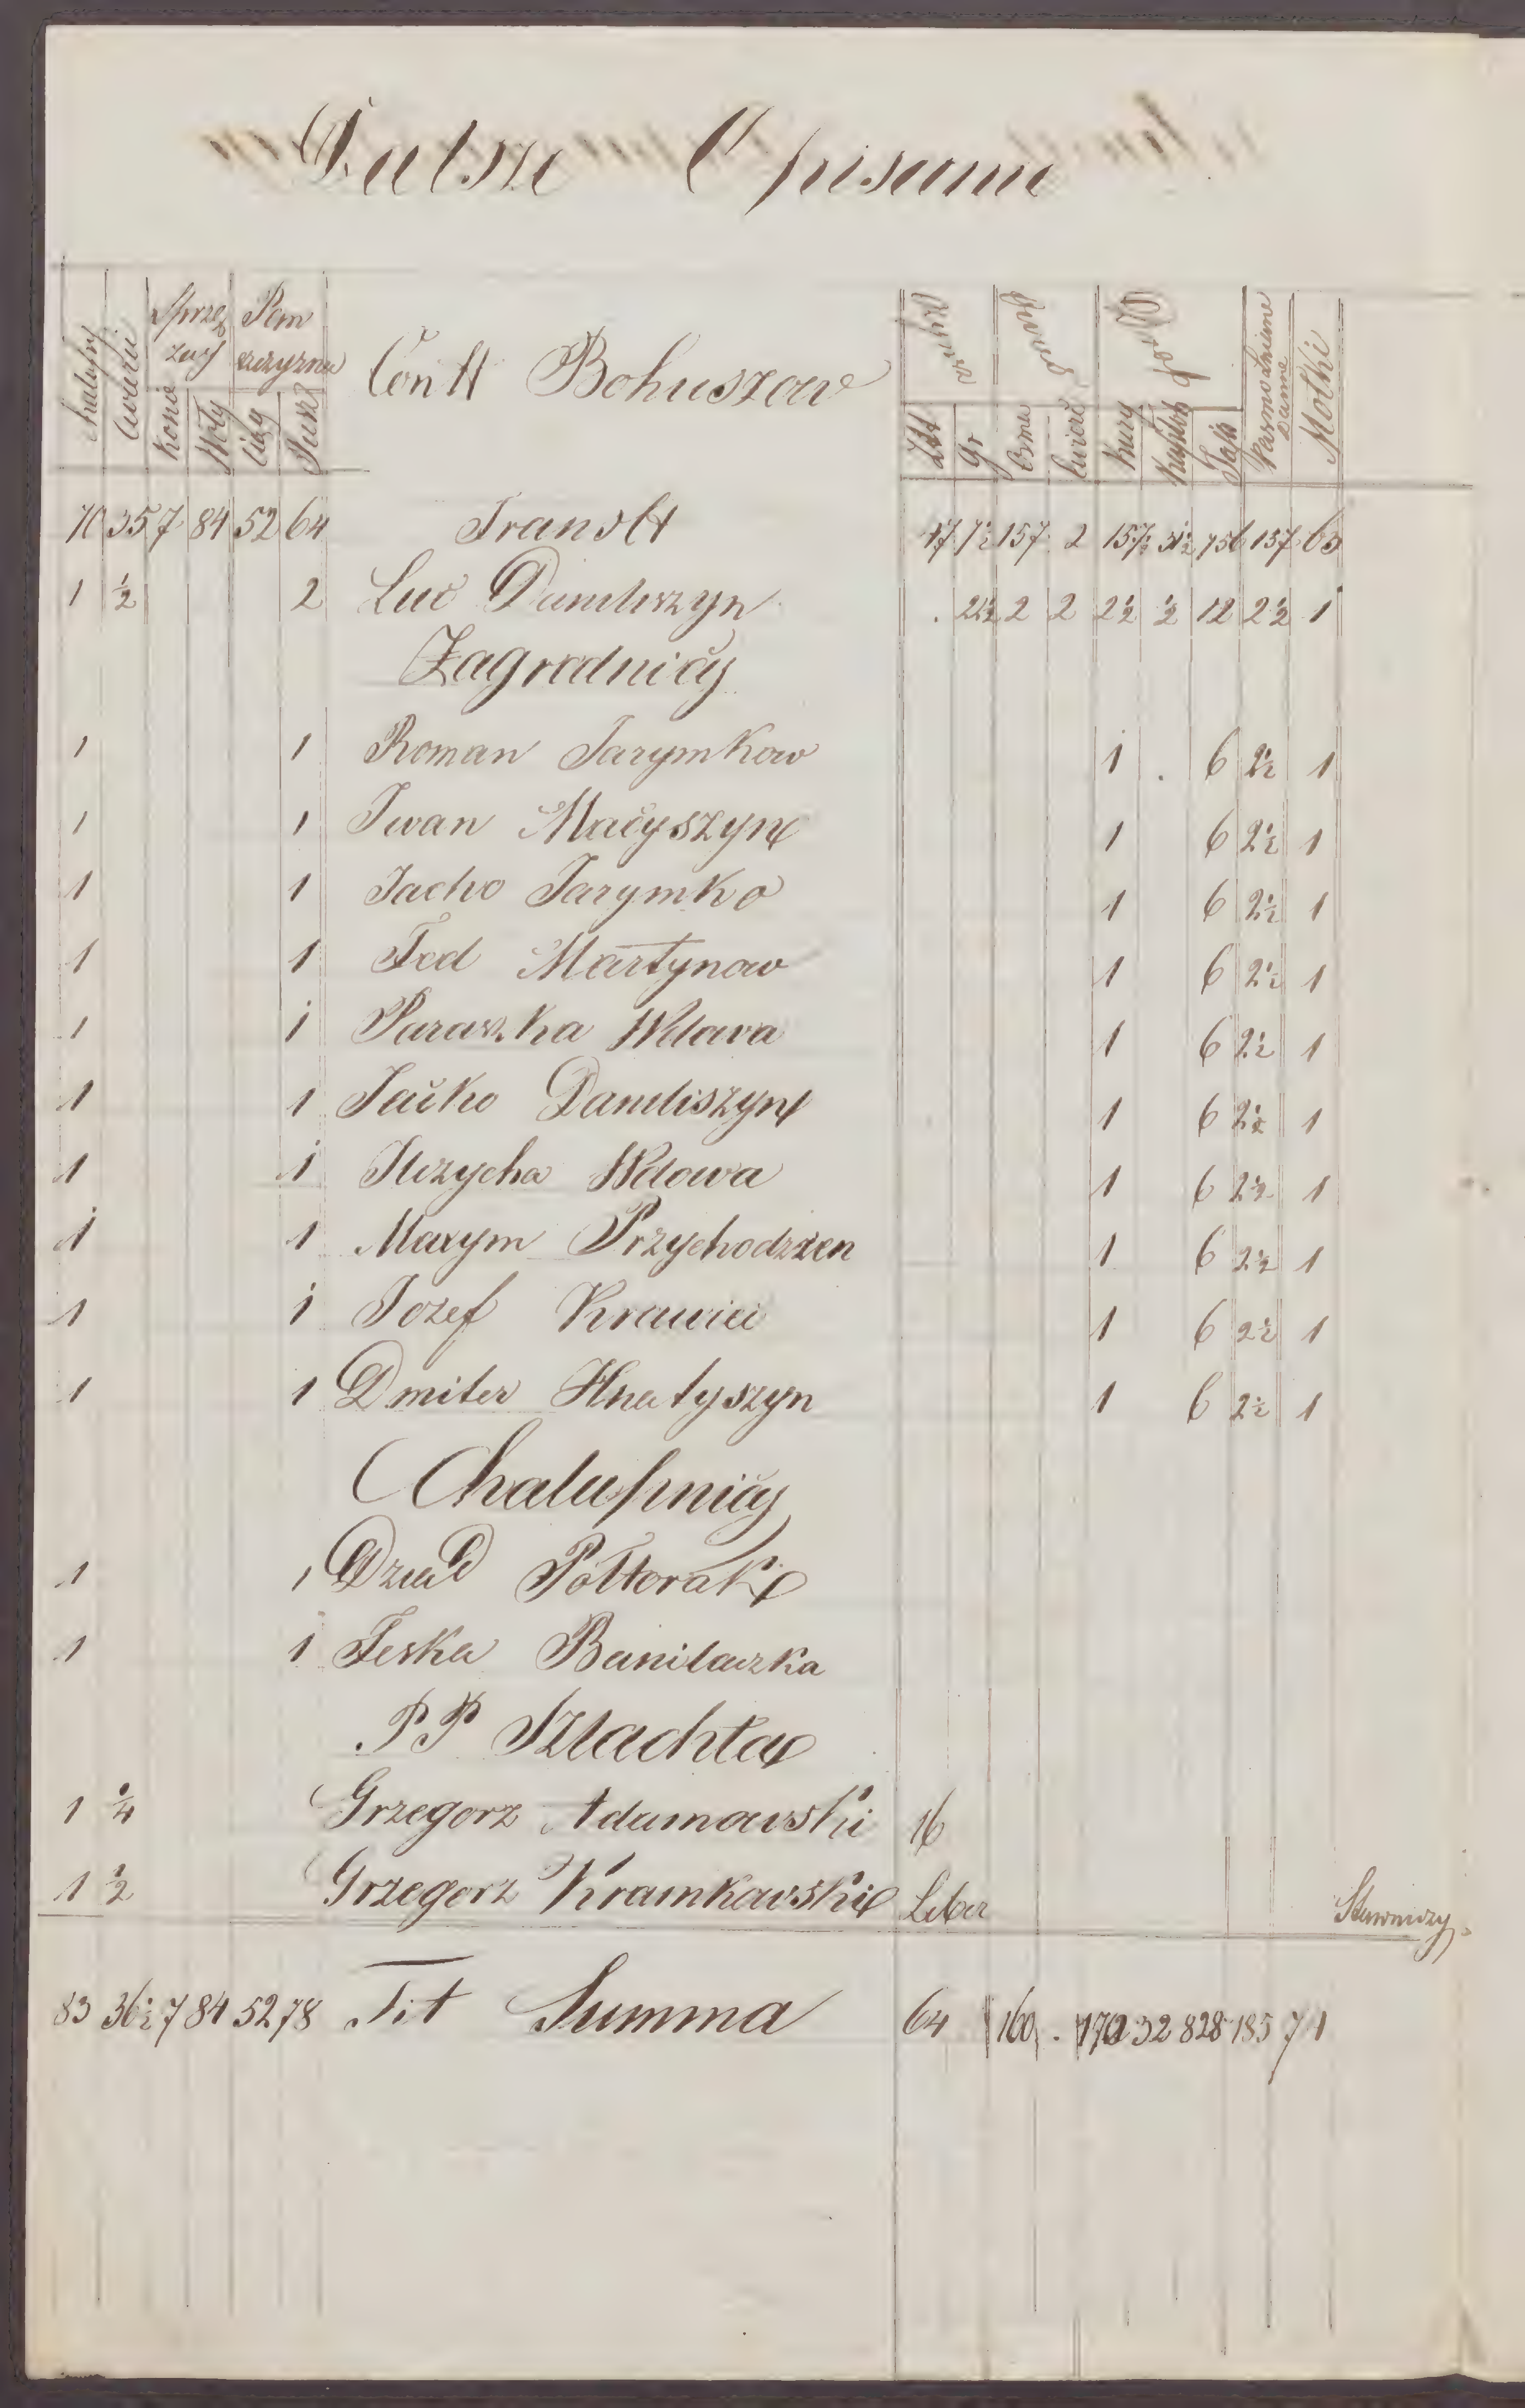 Dalsze Opisanie
Chałupy Ćwierci Sprzężaj Konie Woły Pańszczyzna Ciąg Pusz Cont Bohuszow Złł Gr Osma Ćwierć Kury Kapłon Jaja Pasmo Lniane Dанне Motki
70 35 7 84 52 64 Transtt 47 7½ 157 2 157½ 31½ 756 157 63
1 ½ 2 Luc Daniliszyn . 21½ 2 2 2½ ½ 12 2½ 1
Zagrodnicy
1 1 Roman Jarymkow 1 . 6 2½ 1
1 1 Iwan Macyszyn 1 6 2½ 1
1 1 Jacko Jarymko 1 6 2½ 1
1 1 Fed Martynow 1 6 2½ 1
1 1 Paraszka Wdowa 1 6 2½ 1
1 1 Jacko Daniliszyn 1 6 2½ 1
1 1 Wdowa 1 6 2½ 1
1 1 Maxym Przychodzen 1 6 2½ 1
1 1 Jozef Krawiec 1 6 2½ 1
1 1 Dmiter Hnatyszyn 1 6 2½ 1
Chalupnicy
1 1 Dziad Połtorak
1 1 Feska Banilaczka
PP Szlachta
1 ¼ Grzegorz Adamowski 16
1 ½ Grzegorz Kramkowski Liber
83 36½ 7 84 52 78 Fit Summa 64 160 . 170 32 828 185 74